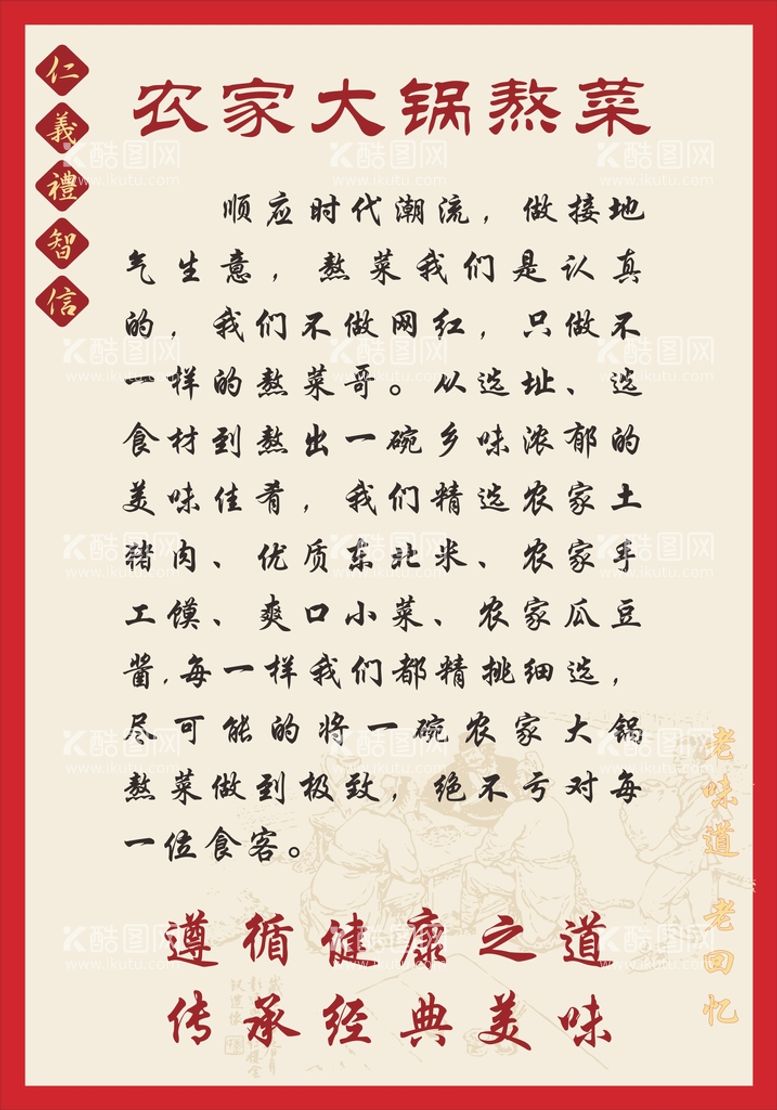 农家大锅熬菜
仁
義
禮
智
信
顺应时代潮流，做接地
气生意，熬菜我们是认真
的，我们不做网红，只做不
一样的熬菜哥。从选址、选
食材到熬出一碗乡味浓郁的
美味佳肴，我们精选农家土
猪肉、优质东北米、农家手
工馍、爽口小菜、农家瓜豆
酱,每一样我们都精挑细选，
尽可能的将一碗农家大锅
熬菜做到极致，绝不亏对每
一位食客。
老味道 老回忆
遵循健康之道
传承经典美味
酷图网
www.ikutu.com